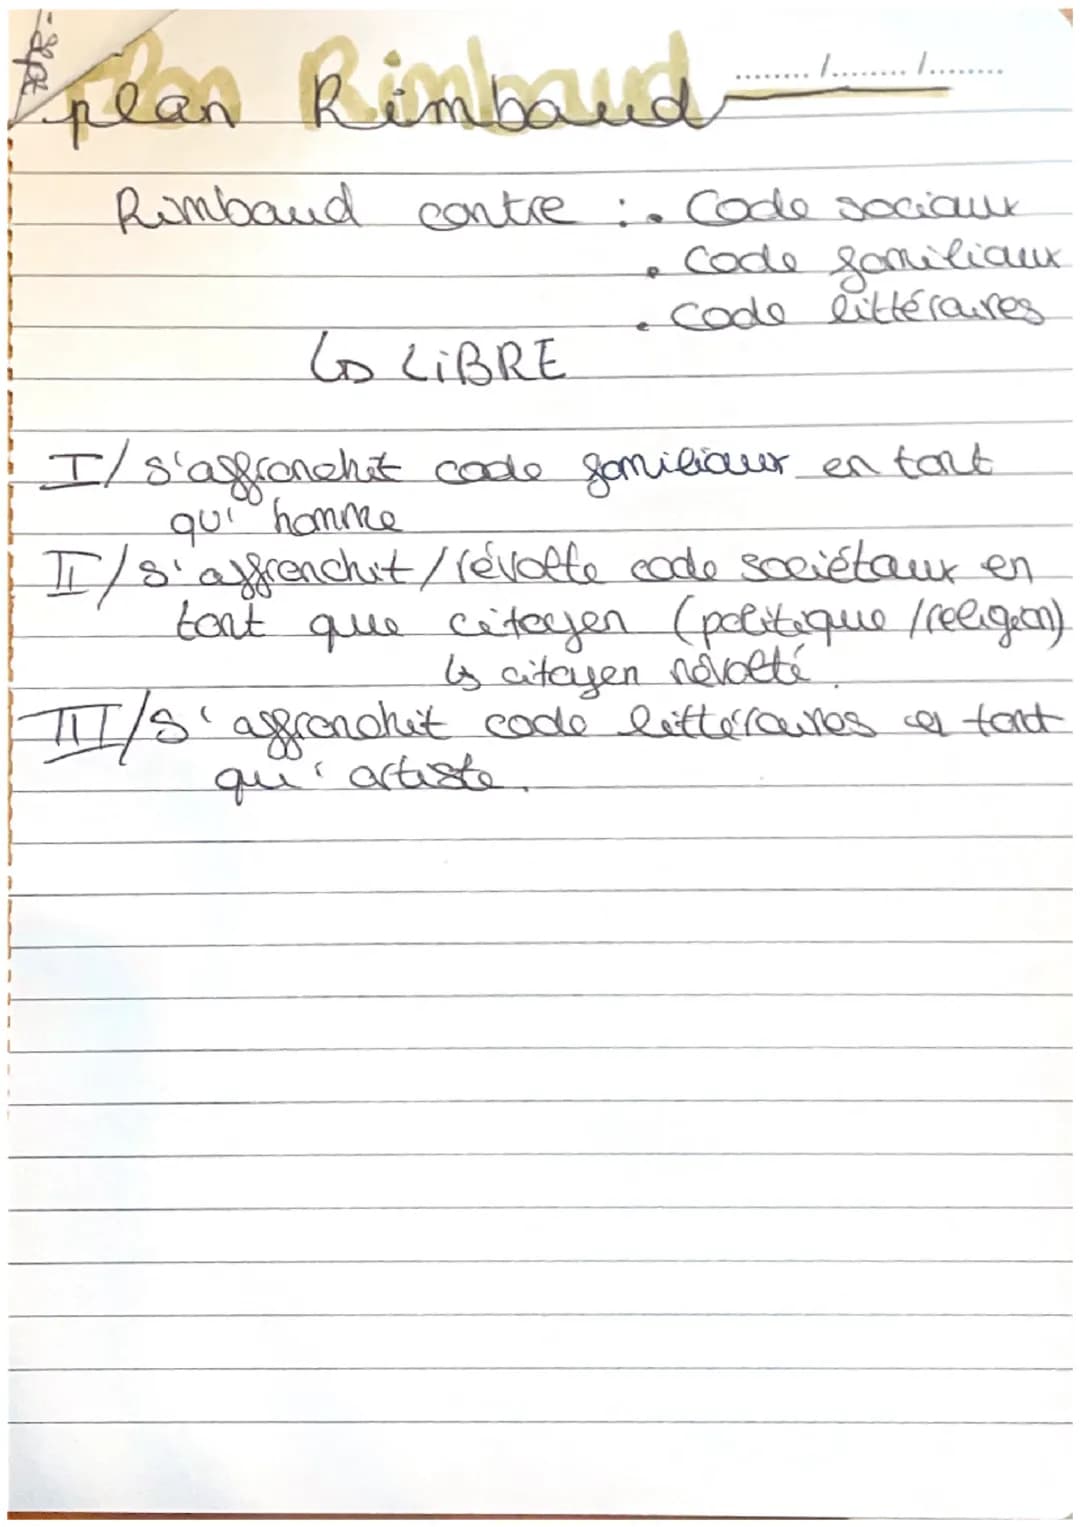 plan Rimbaud ......../......../........
Rimbaud contre : . Code sociaux
. Code familiaux
. Code littéraires
↳ LiBRE
I/ s'affranchit code familiaux en tant
qu' homme
II/ s'affrenchit / révolte code sociétaux en
tant que citoyen (politique / religion)
↳ citoyen révolté.
III/ s'affranchit code littéraires en tant
qu' artiste.